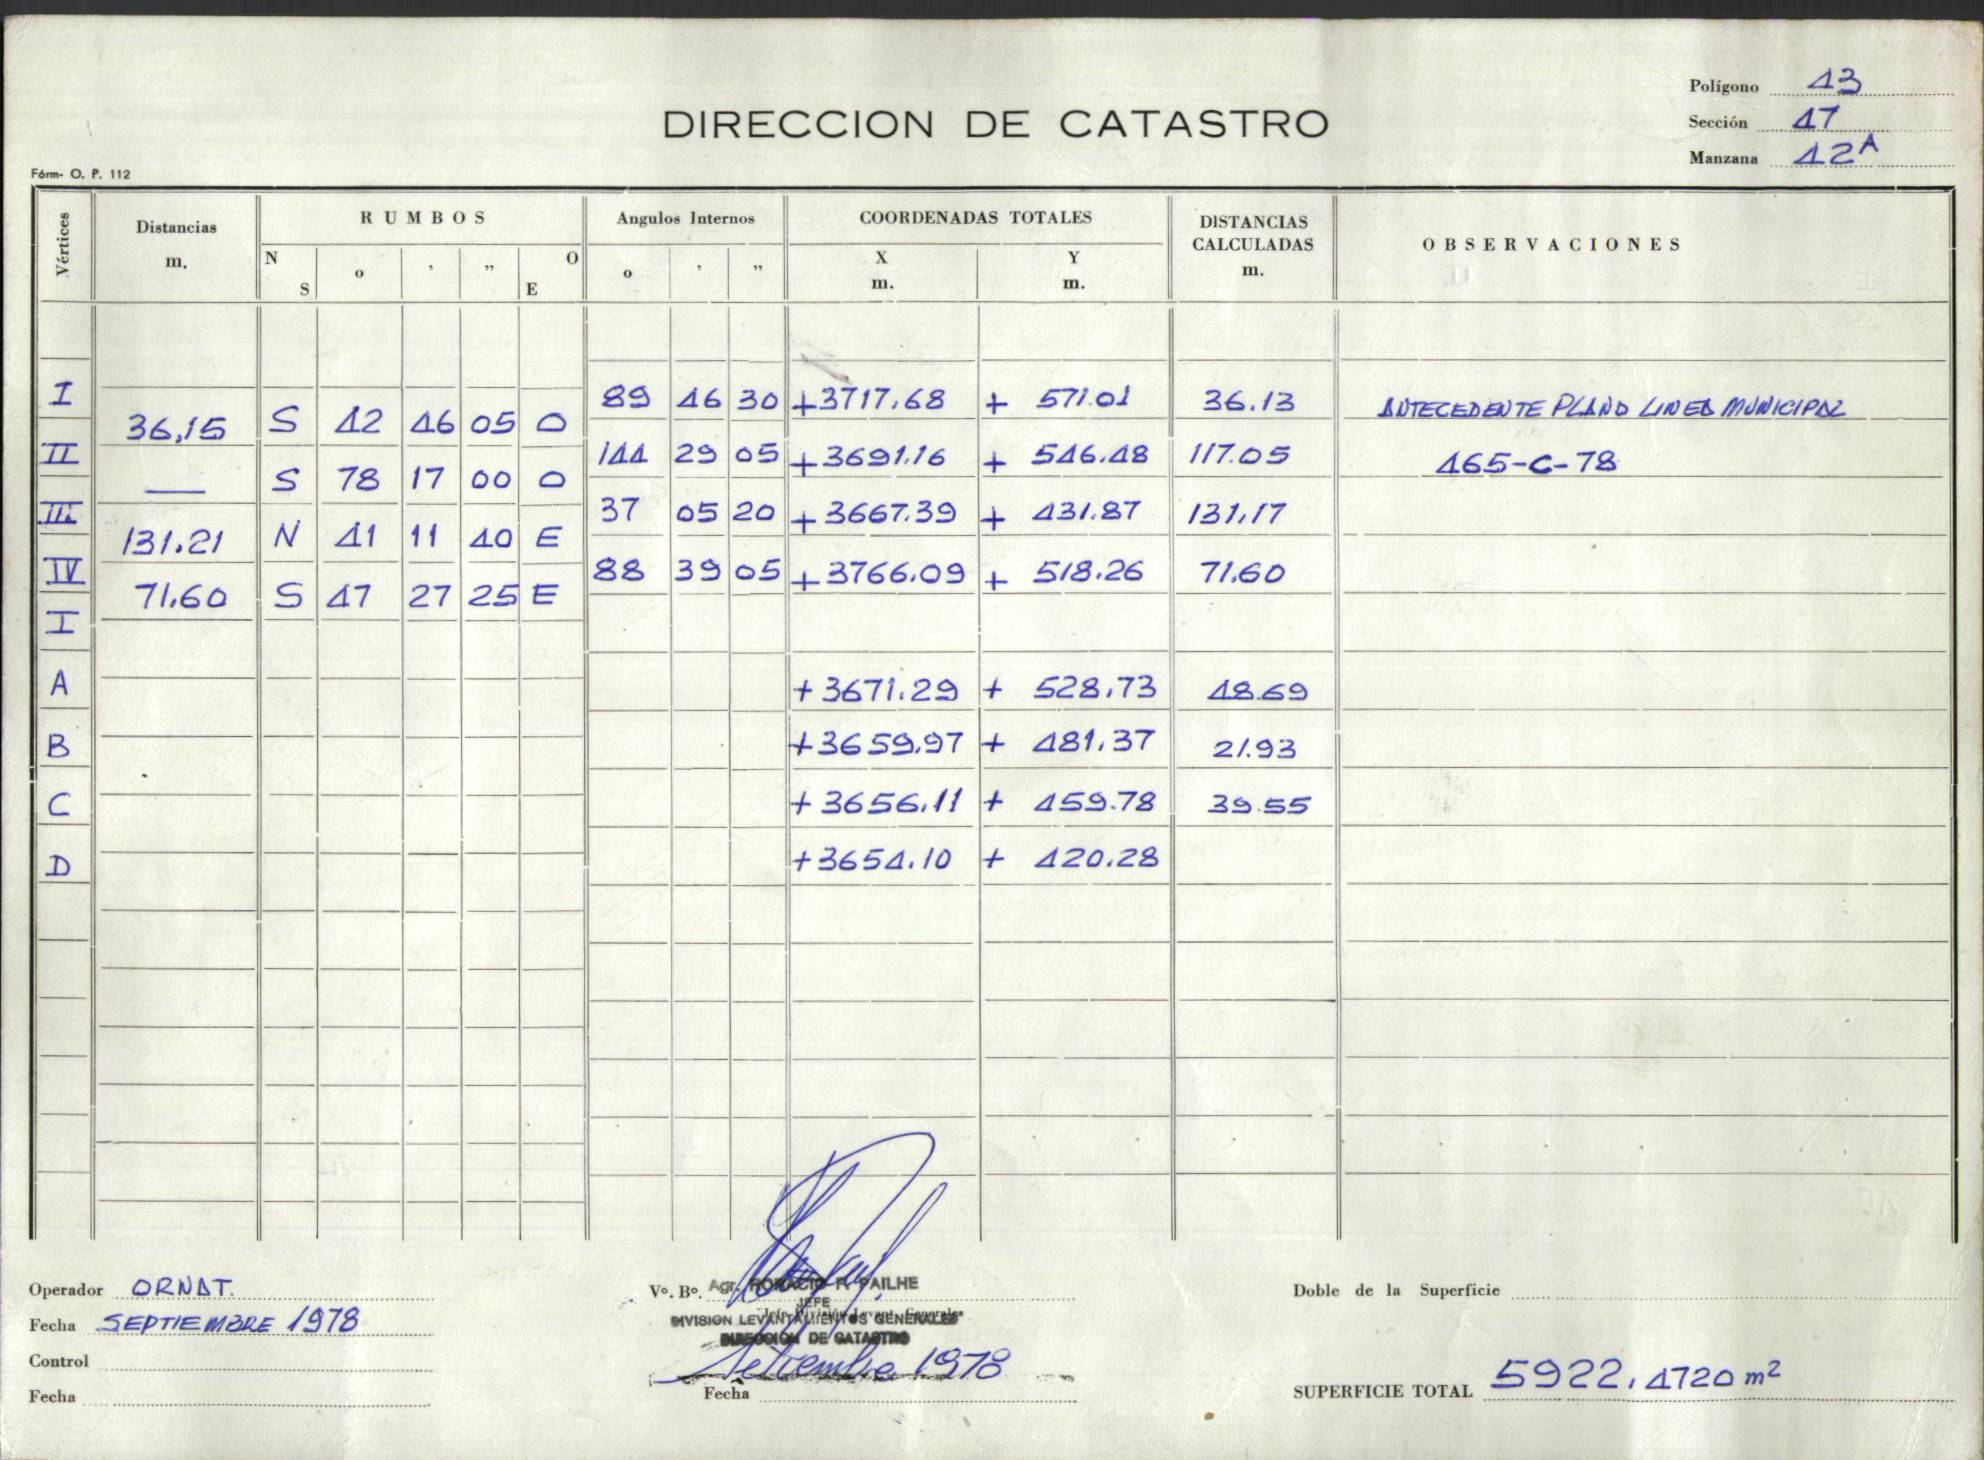 Polígono 43
DIRECCION DE CATASTRO
Sección 47
Manzana 42A
Fórm- O. P. 112
Vértices Distancias m. RUMBOS Angulos Internos COORDENADAS TOTALES DISTANCIAS CALCULADAS m. OBSERVACIONES
N S o ' " O E o ' " X m. Y m.
I 89 46 30 +3717.68 + 571.01 36.13 ANTECEDENTE PLANO LINEA MUNICIPAL
36,15 S 42 46 05 O
II 144 29 05 +3691.16 + 546.48 117.05 465-C-78
— S 78 17 00 O
III 37 05 20 +3667.39 + 431.87 131.17
131.21 N 41 11 40 E
IV 88 39 05 +3766.09 + 518.26 71.60
71.60 S 47 27 25 E
I
A +3671.29 + 528.73 48.69
B +3659.97 + 481.37 21.93
C +3656.11 + 459.78 39.55
D +3654.10 + 420.28
Operador ORNAT.
Vº. Bº. Agr. HORACIO R. PAILHE
JEFE
DIVISION LEVANTAMIENTOS GENERALES
"Jefe División Levant. Generales"
DIRECCIÓN DE CATASTRO
Doble de la Superficie
Fecha SEPTIEMBRE 1978
Control
Setiembre 1978
Fecha
Fecha
SUPERFICIE TOTAL 5922.4720 m2